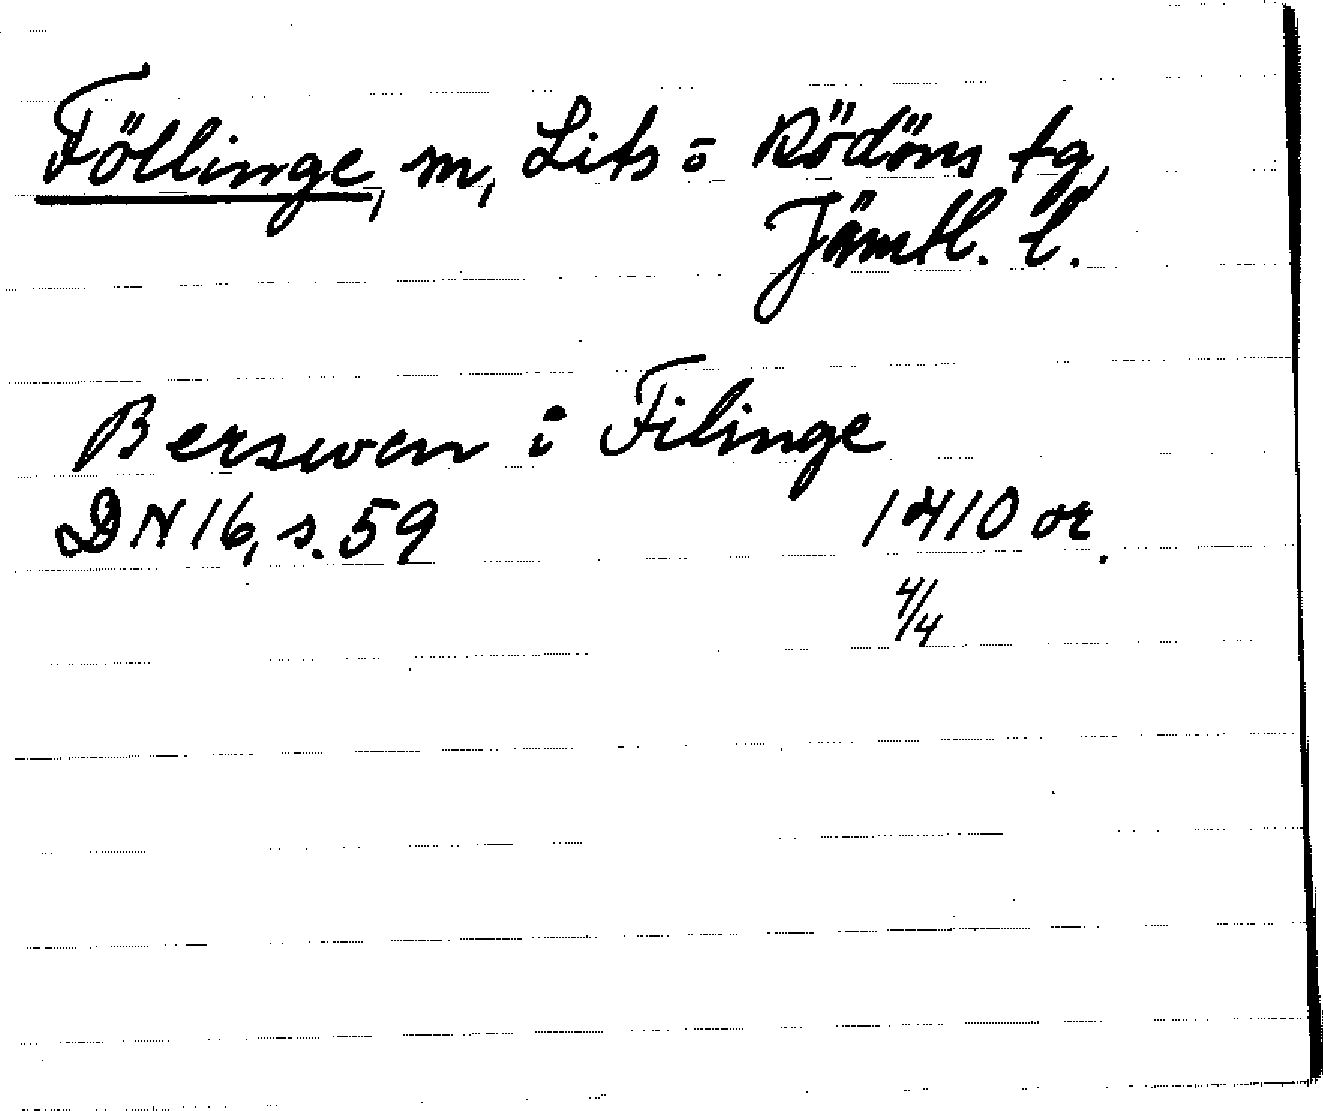 Föllinge, sn, Lits o Rödöns tg,
Jämtl. l.
Berswen i Filinge
DN 16, s. 59 1410 or.
4/4